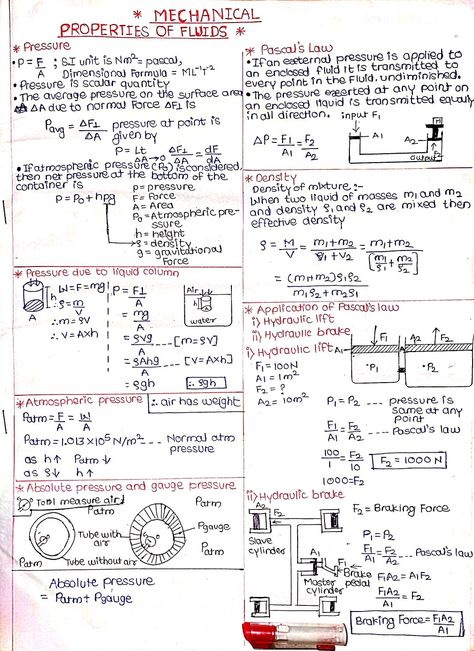 * MECHANICAL
PROPERTIES OF FLUIDS *
* Pressure
• P = F/A ; SI unit is Nm² = pascal,
Dimensional Formula = ML⁻¹T⁻²
• Pressure is scalar quantity
• The average pressure on the surface area
ΔA due to normal Force ΔF⊥ is
Pavg = ΔF⊥/ΔA pressure at point is
given by
P = Lt ΔA→0 ΔF⊥/ΔA = dF/dA
• If atmospheric pressure (P₀) is considered
then net pressure at the bottom of the
container is
P = P₀ + hρg
p = pressure
F = Force
A = Area
P₀ = Atmospheric pre-
ssure
h = height
ρ = density
g = gravitational
Force
* Pressure due to liquid column
h
A
W = F = mg
ρ = m/V
∴ m = ρV
∴ V = A×h
P = F⊥/A
= mg/A
= ρVg/A --- [m = ρV]
= ρAhg/A --- [V = A×h]
= ρgh
∴ ρgh
Air
h
water
* Atmospheric pressure
∴ air has weight
Patm = F/A = W/A
Patm = 1.013×10⁵ N/m² --- Normal atm
pressure
as h↑ Patm ↓
as ρ↓ h↑
* Absolute pressure and gauge pressure
Tool measure air
Patm
Patm
Pgauge
Tube with
air
Patm
Patm
Tube without air
Absolute pressure
= Patm + Pgauge
* Pascal's Law
• If an external pressure is applied to
an enclosed fluid it is transmitted to
every point in the fluid. undiminished.
• The pressure exerted at any point on
an enclosed liquid is transmitted equally
in all direction.
input F₁
ΔP = F₁/A₁ = F₂/A₂
A1
A2
M
F₂
output
* Density
Density of mixture :-
When two liquid of masses m₁ and m₂
and density ρ₁ and ρ₂ are mixed then
effective density
ρ = M/V = m₁+m₂/ρ₁+V₂ = m₁+m₂/[m₁/ρ₁ + m₂/ρ₂]
= (m₁+m₂)ρ₁ρ₂/m₁ρ₂+m₂ρ₁
* Application of Pascal's law
i) Hydraulic lift
ii) Hydraulic brake
i) Hydraulic lift
F₁ = 100N
A₁ = 1m²
F₂ = ?
A₂ = 10m²
A1
F₁
A
A2
F₂
•P₁
•P₂
P₁ = P₂ --- pressure is
same at any
point
F₁/A₁ = F₂/A₂ --- Pascal's law
100/1 = F₂/10
1000 = F₂
F₂ = 1000 N
ii) Hydraulic brake
A2 F₂
Slave
cylinder
A1
F₁
Brake
pedal
Master
cylinder
F₂ = Braking Force
P₁ = P₂
F₁/A₁ = F₂/A₂ --- Pascal's law
F₁A₂ = A₁F₂
F₁A₂/A₁ = F₂
Braking Force = F₁A₂/A₁